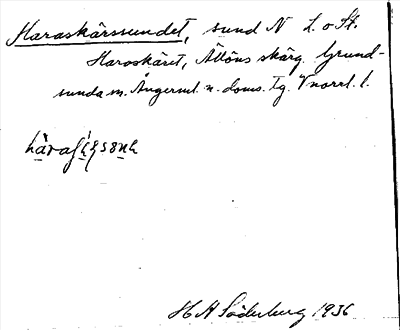 Haraskärssundet, sund N L. o St.
Haraskäret, Ällöns skärg. Grund-
sunda sn. Ångerml. n. doms. tg. Vnorrl. l.
H H Söderberg 1936